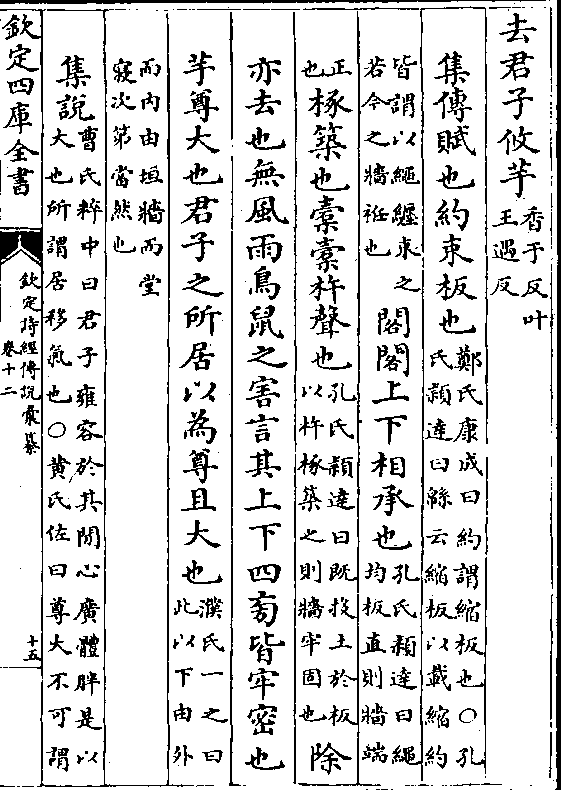 去君子攸芋香于反叶王遇反
集傳賦也約束板也鄭氏康成曰約謂縮板也○孔氏穎達曰緜云縮板以載縮約
皆謂以繩纒束之若今之牆衽也閣閣上下相承也孔氏穎達曰繩均板直則牆端
正也椓築也橐橐杵聲也孔氏穎達曰既投土於板以杵椓築之則牆牢固也除
亦去也無風雨鳥鼠之害言其上下四旁皆牢密也
芋尊大也君子之所居以為尊且大也濮氏一之曰此以下由外
而内由垣牆而堂寢次第當然也
集說曹氏粹中曰君子雍容於其閒心廣體胖是以大也所謂居移氣也○黄氏佐曰尊大不可謂
欽定四庫全書
欽定詩經傳說彙纂
卷十二
十五